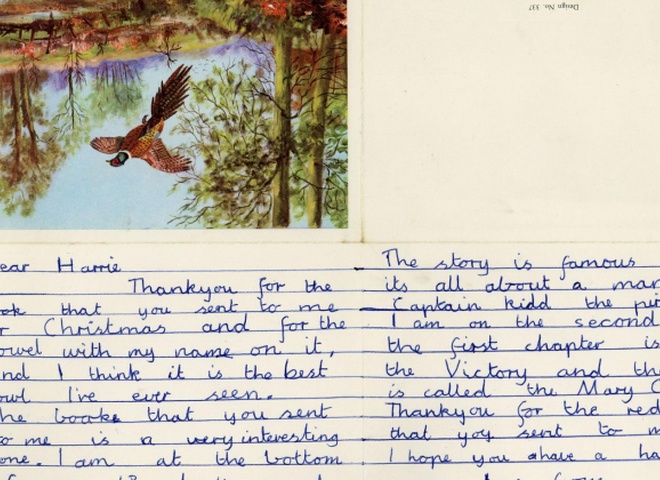 Design No. 337
ear Harrie
Thankyou for the
ok that you sent to me
r Christmas and for the
owel with my name on it,
nd I think it is the best
owl I've ever seen.
he books that you sent
o me is a very interesting
one. I am at the bottom
The story is famous
its all about a man
Captain kidd the pir
I am on the second
the first chapter is
the Victory and the
is called the Mary
Thankyou for the red
that you sent to m
I hope you have a ha